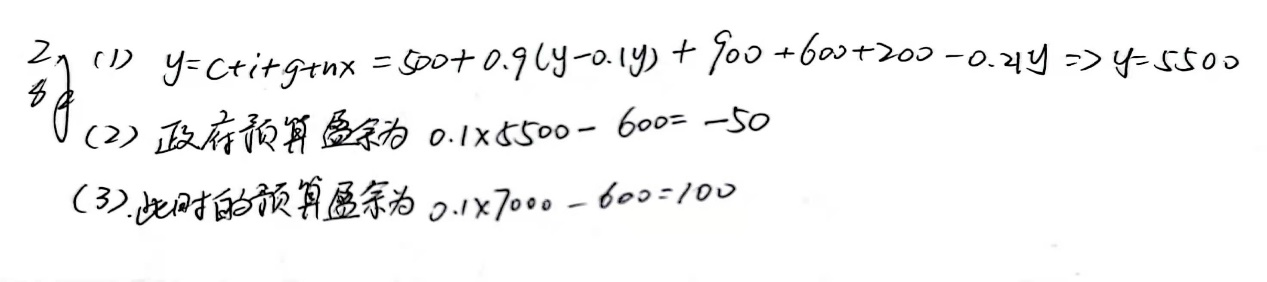 28 (1) y=c+i+g+nx=500+0.9(y-0.1y)+900+600+200-0.21y=>y=5500
(2) 政府预算盈余为 0.1×5500-600=-50
(3).此时的预算盈余为 0.1×7000-600=100